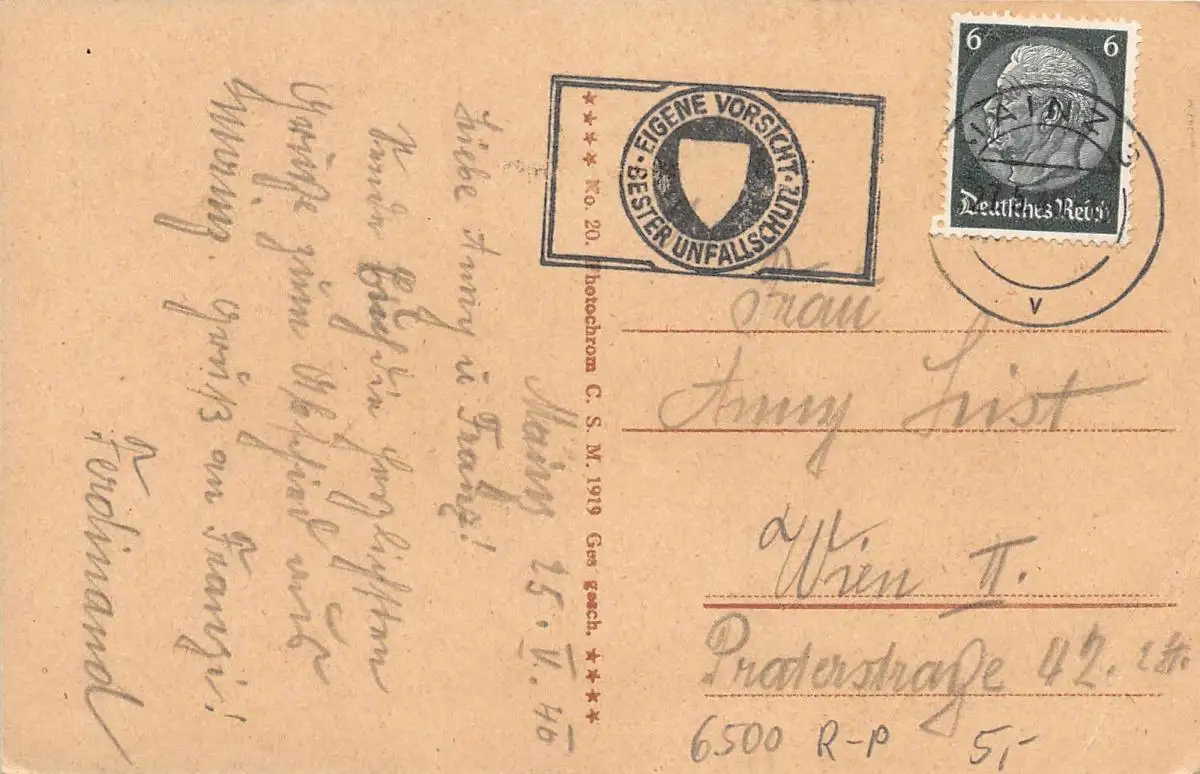 Mainz 25. V. 40
Liebe Anny u Franz!
Sende Euch die herzlichsten
Grüße zum Abschied aus
Mainz. Gruß an Franzi!
Ferdinand
★★★★ No. 20. Photochrom C. S. M. 1919 Ges gesch. ★★★★
· EIGENE VORSICHT · BESTER UNFALLSCHUTZ
6 6
Deutsches Reich
MAINZ
v
Frau
Anny List
Wien II.
Praterstraße 42.
6500 R-P 5,-